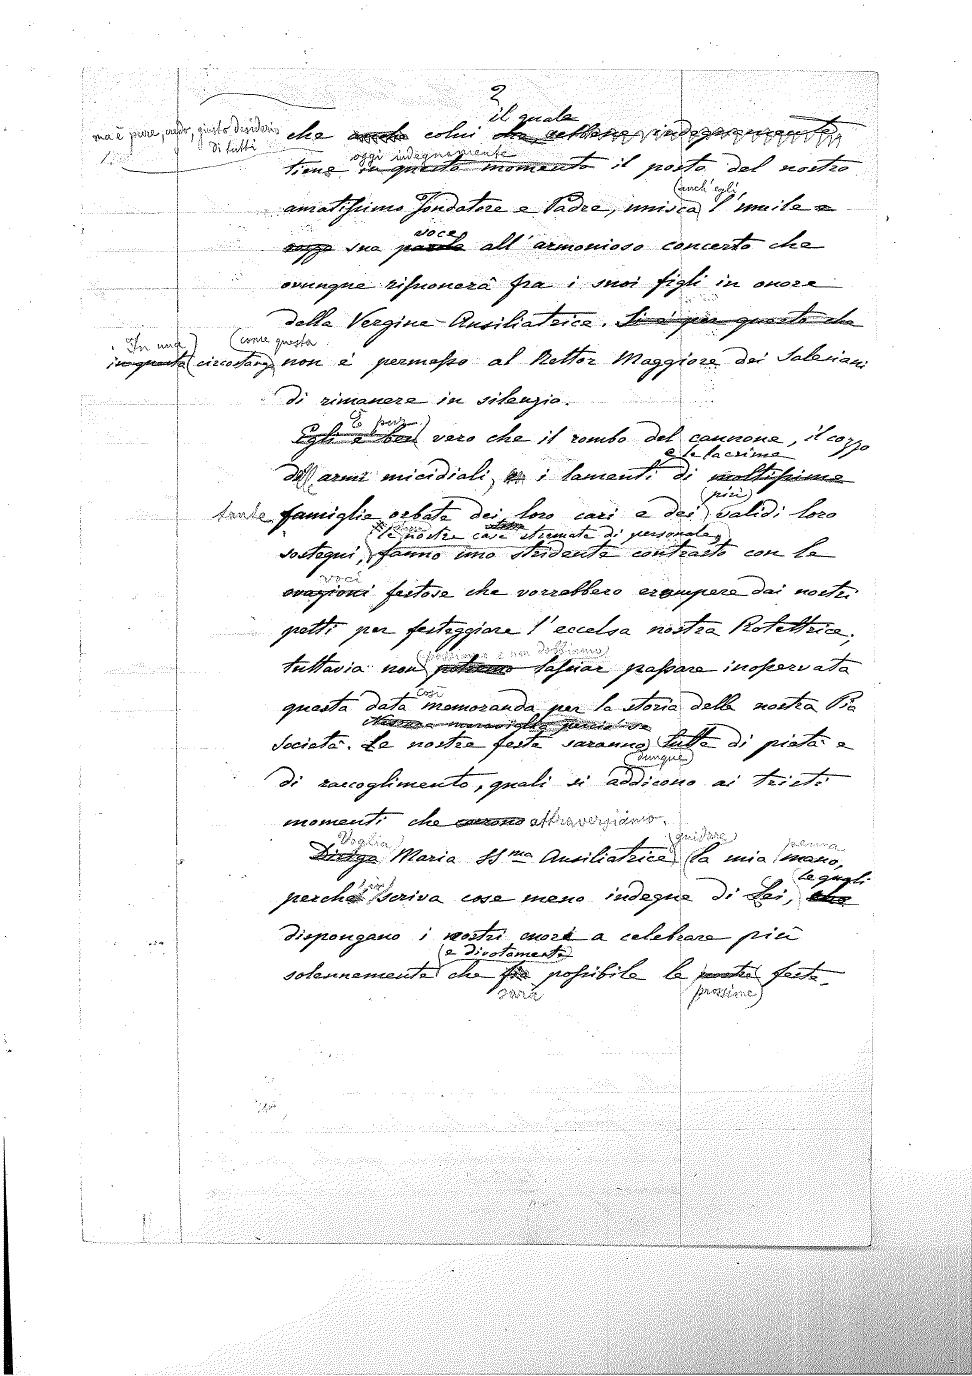 2
il quale
ma è pure, credo, giusto desiderio
di tutti
che anche colui che sebbene indegnamente
oggi indegnamente
tiene in questo momento il posto del nostro
anch'egli
amatissimo Fondatore e Padre, unisca l'umile e
voce
rozza sua parola all'armonioso concerto che
ovunque risuonerà fra i suoi figli in onore
della Vergine Ausiliatrice. Si è per questo che
In una come questa
in questa circostanza non è permesso al Rettor Maggiore dei Salesiani
di rimanere in silenzio.
È pur
Egli è ben vero che il rombo del cannone, il cozzo
e le lacrime
dell'armi micidiali, i lamenti di moltissime
più
tante famiglie orbate dei loro cari e dei validi loro
le nostre case stremate di personale,
sostegni, fanno uno stridente contrasto con le
voci
ovazioni festose che vorrebbero erompere dai nostri
petti per festeggiare l'eccelsa nostra Protettrice;
possiamo e non dobbiamo
tuttavia non potremo lasciar passare inosservata
così
questa data memoranda per la storia della nostra Pia
Nessuna meraviglia perciò se
Società. Le nostre feste saranno tutte di pietà e
dunque
di raccoglimento, quali si addicono ai tristi
momenti che corrono attraversiamo.
Voglia guidare penna
Diriga Maria SS.ma Ausiliatrice la mia mano,
le quali
perchè scriva cose meno indegne di Lei, che
dispongano i nostri cuori a celebrare più
e divotamente
solennemente che fia possibile le nostre feste.
sarà prossime